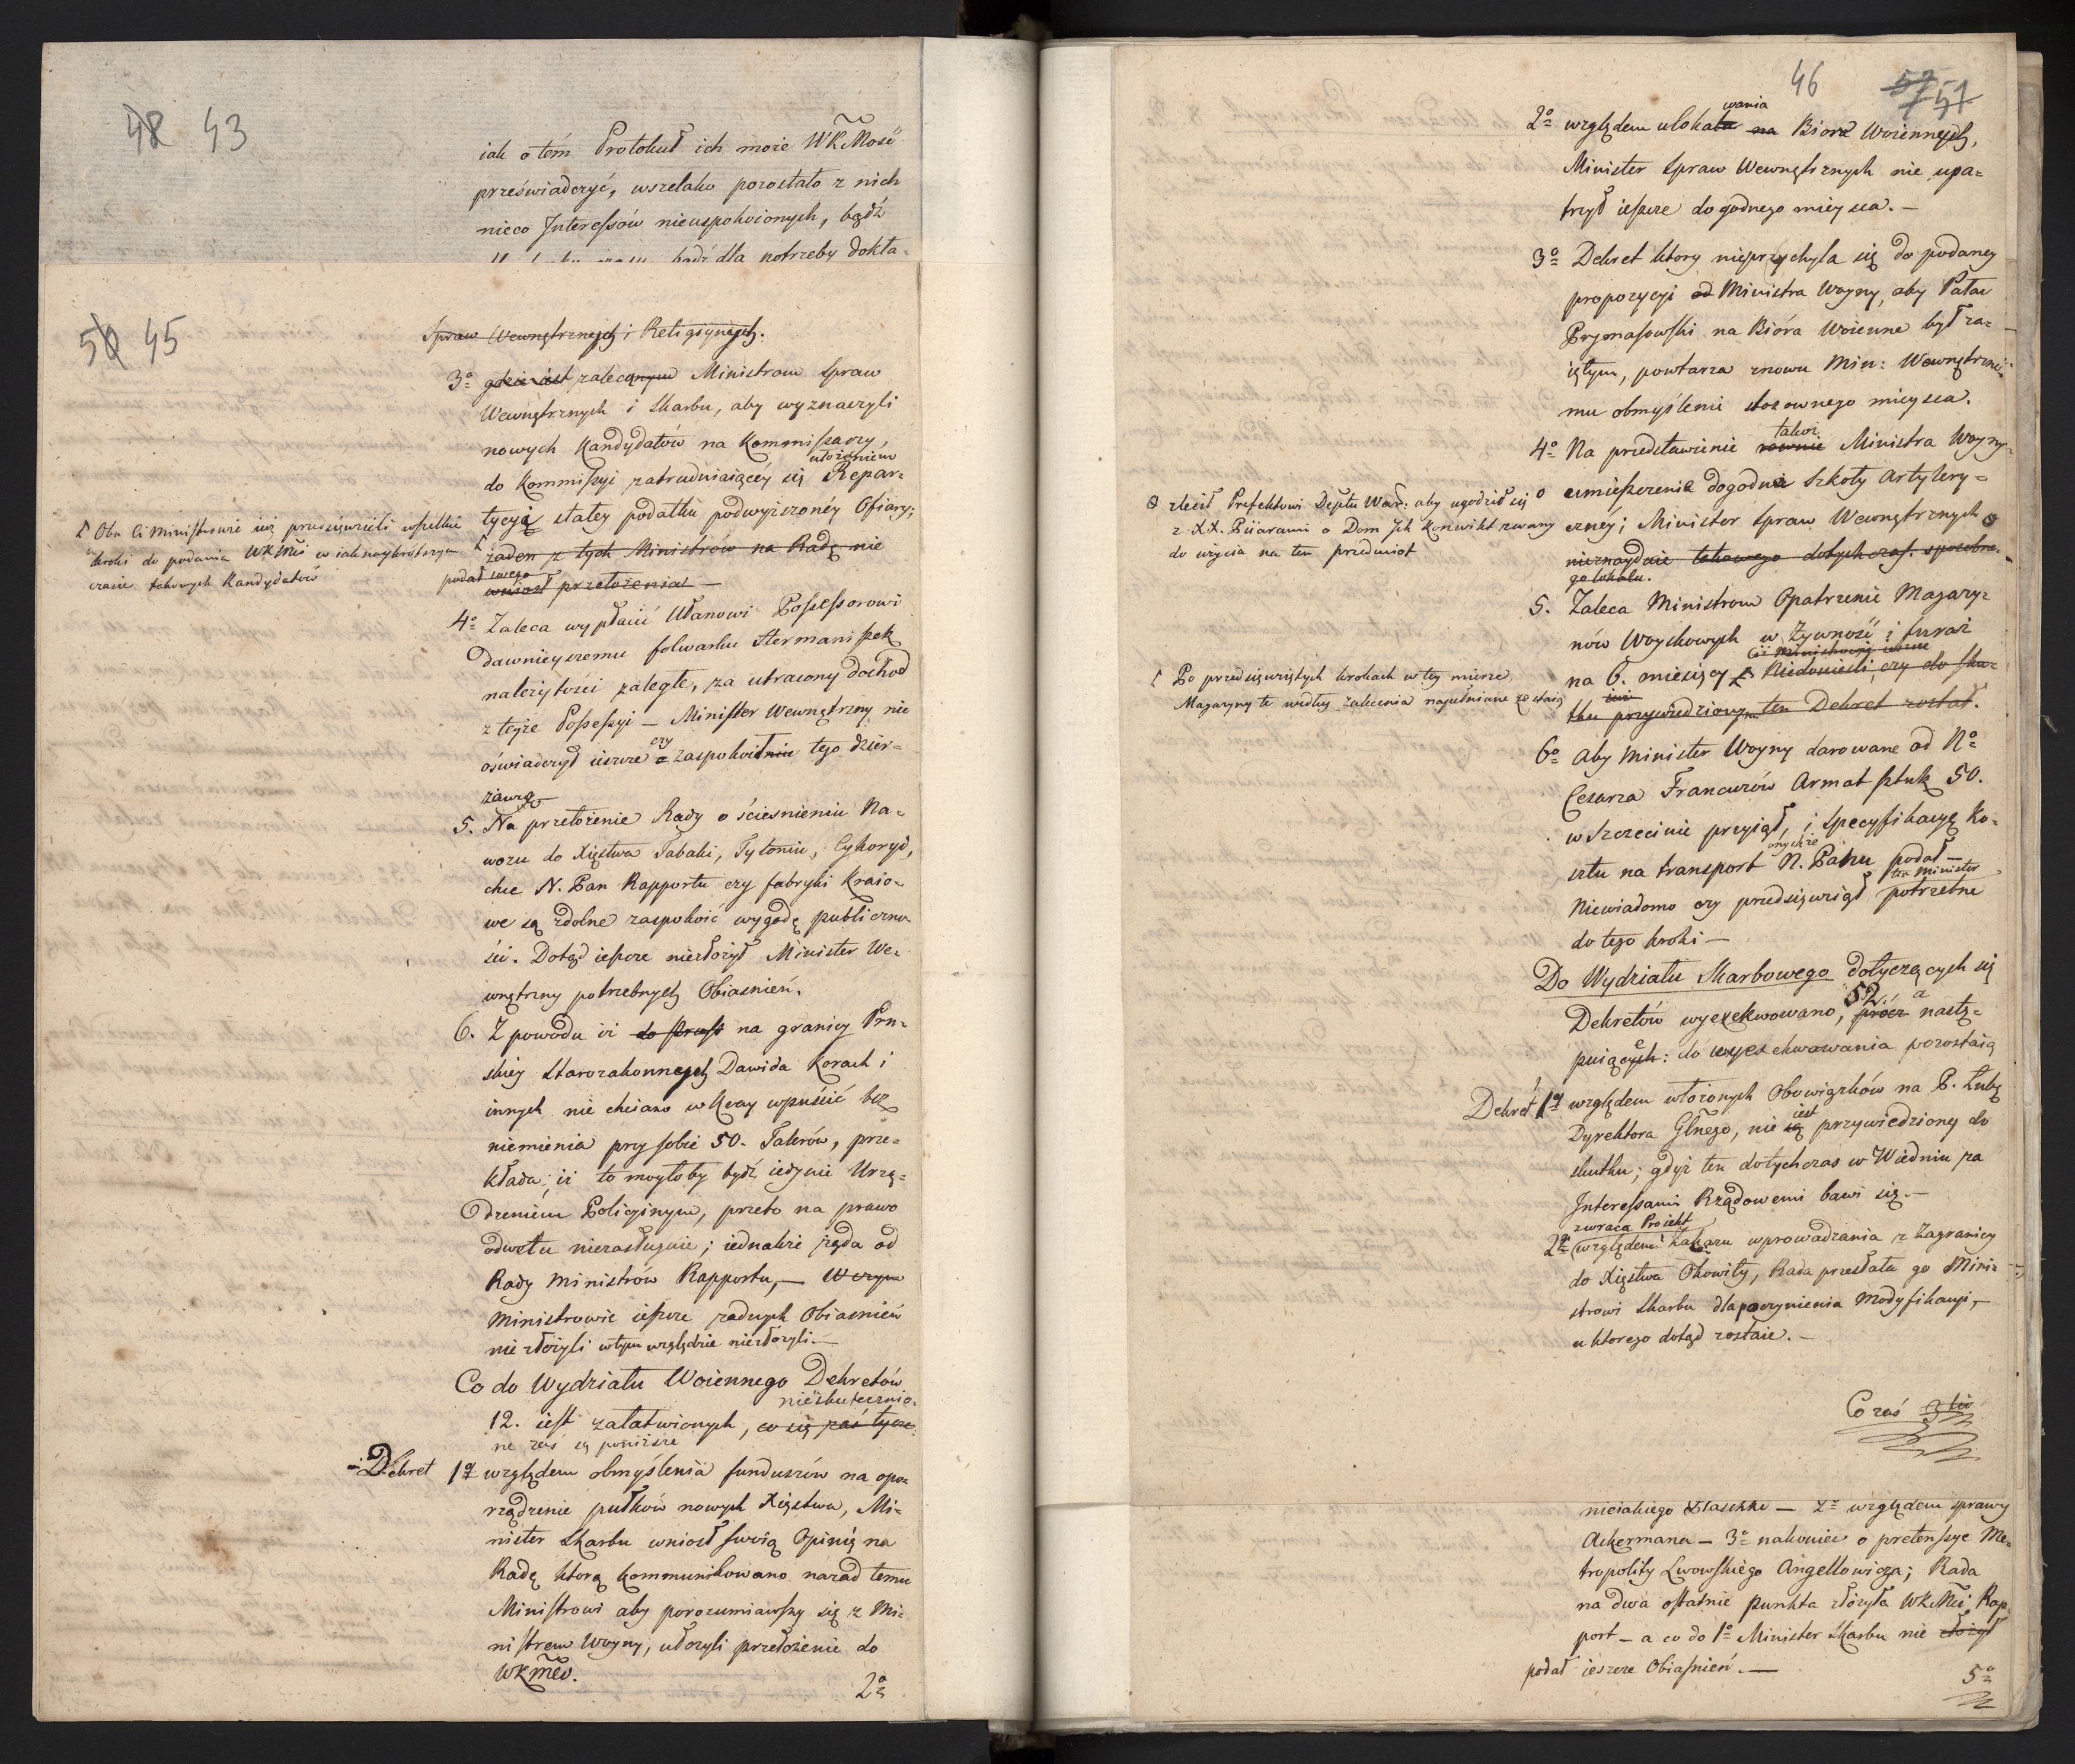 48 43
iak o tém Protokuł ich może WKMość
przeświadczyć, wszelako pozostało z nich
nieco Interessów nieuspokoionych, bądź
bądź dla potrzeby dokła=
50 45
Spraw Wewnętrznych i Religiynych.
3o gdzie iest zaleconym Ministrom Spraw
Wewnętrznych i Skarbu, aby wyznaczyli
nowych Kandydatów na Kommissarzy,
ułożeniem
do Kommissyi zatrudniaiącéy się Repar=
tycyą stałey podatku podwyższonéy Ofiary;
Oba Ci Ministrowie iuż przedsięwzieli wszelkie
kroki do podania WKMci w iak naykrótszym
czasie takowych Kandydatów
żaden z tych Ministrów na Radę nie
podał swego
wniosł przełożenia —
4o Zaleca wypłacić Ułanowi Possessorowi
dawnieyszemu folwarku Hermaniszek
należytości zaległe, za utracony dochod
z teyże Possessyi — Minister Wewnętrzny nie
oświadczył ieszcze czy zaspokoił tego dzier=
żawcę
5. Na przełożenie Rady o ścieśnieniu Na=
wozu do Xięstwa Tabaki, Tytoniu, Cykoryi,
chce N. Pan Rapportu czy fabryki Kraio=
we są zdolne zaspokoić wygodę publiczno
ści. Dotąd ieszcze niezłożył Minister We=
wnętrzny potrzebnych Obiaśnień.
6. Z powodu iż do Pruss na granicy Pru=
skiey Starozakonnych Dawida Korach i
innych nie chciano w Kray wpuścić bez
niemienia przy sobie 50. Talerów, prze=
kłada; iż to mogłoby bydź iedynie Urzą=
dzeniem Policyinym, przeto na prawo
odwetu niezasługuie; iednakże żąda od
Rady Ministrów Rapportu, — W czym
Ministrowie ieszcze żadnych Obiaśnień
nie złożyli w tym względzie niezłożyli. —
Co do Wydziału Woiennego Dekretów
nieskutecznio=
12. iest załatwionych, co się zaś tycze
ne zaś są poniższe
Dekret 1o względem obmyślenia funduszów na opo=
rządzenie pułków nowych Xięstwa, Mi=
nister Skarbu wniosł swoią Opinią na
Radę którą kommunikowano nazad temu
Ministrowi aby porozumiawszy się z Mi=
nistrem Woyny, ułożyli przełożenie do
WKMci.
2o
46 57 51
wania
2o względem ulokata na Biora Woiennych,
Minister Spraw Wewnętrznych nie upa=
trzył ieszcze dogodnego mieysca. —
3o Dekret ktory nieprzychyla się do podaney
propozycyi od Ministra Woyny, aby Pałac
Prymasowski na Bióra Woienne był za=
iętym, powtarza znowu Min: Wewnętrzne=
mu obmyślenie stosownego mieysca.
takoż
4o Na przedstawienie rownie Ministra Woyny
umieszczenia dogodnie Szkoły Artylery=
zlecił Prefektowi Deptu Warsz: aby ugodził się
z XX. Piiarami o Dom Ich Konwikt zwany
do użycia na ten przedmiot
czney; Minister Spraw Wewnętrznych
nieznayduie takowego dotychczas sposobne=
go lokalu.
5. Zaleca Ministrom Opatrzenie Magazy=
nów Woyskowych w żywność i furaż
Ci Ministrowie
na 6. miesięcy Niedonieśli, czy do sku=
iuż
tku przywiedzionym ten Dekret został.
Po przedsięwziętych krokach w tey mierze,
Magazyny te według zalecenia napełniane zostaią
6o aby Minister Woyny darowane od No
Cesarza Francuzów Armat sztuk 50.
w Szczecinie przyiął, i specyfikacyą Ko=
onychże
sztu na transport N. Panu podał —
ten Minister
Niewiadomo czy przedsięwziął potrzebne
do tego kroki —
Do Wydziału Skarbowego dotyczących się
Dekretów wyexekwowano, 52. prócz a nastę=
puiących: do wyexekwowania pozostaią
Dekret 1o względem włożonych Obowiązków na P. Łubę
iest
Dyrektora Glnego, nie są przywiedziony do
skutku; gdyż ten dotychczas w Wiedniu za
Interessami Rządowemi bawi się. —
zwraca Proiekt
2o względem zakazu wprowadzania z Zagranicy
do Xięstwa Okowity, Rada przesłała go Mini=
strowi Skarbu dla poczynienia Modyfikacyi, —
u ktorego dotąd zostaie. —
Co zaś
nieiakiego Blaschke — 2o względem sprawy
Ackermana — 3o nakoniec o pretensye Me=
tropolity Lwowskiego Angellowicza; Rada
na dwa ostatnie punkta złożyła WKMci Rap
port — a co do 1o Minister Skarbu nie złożył
podał ieszcze Obiaśnień. —
5o